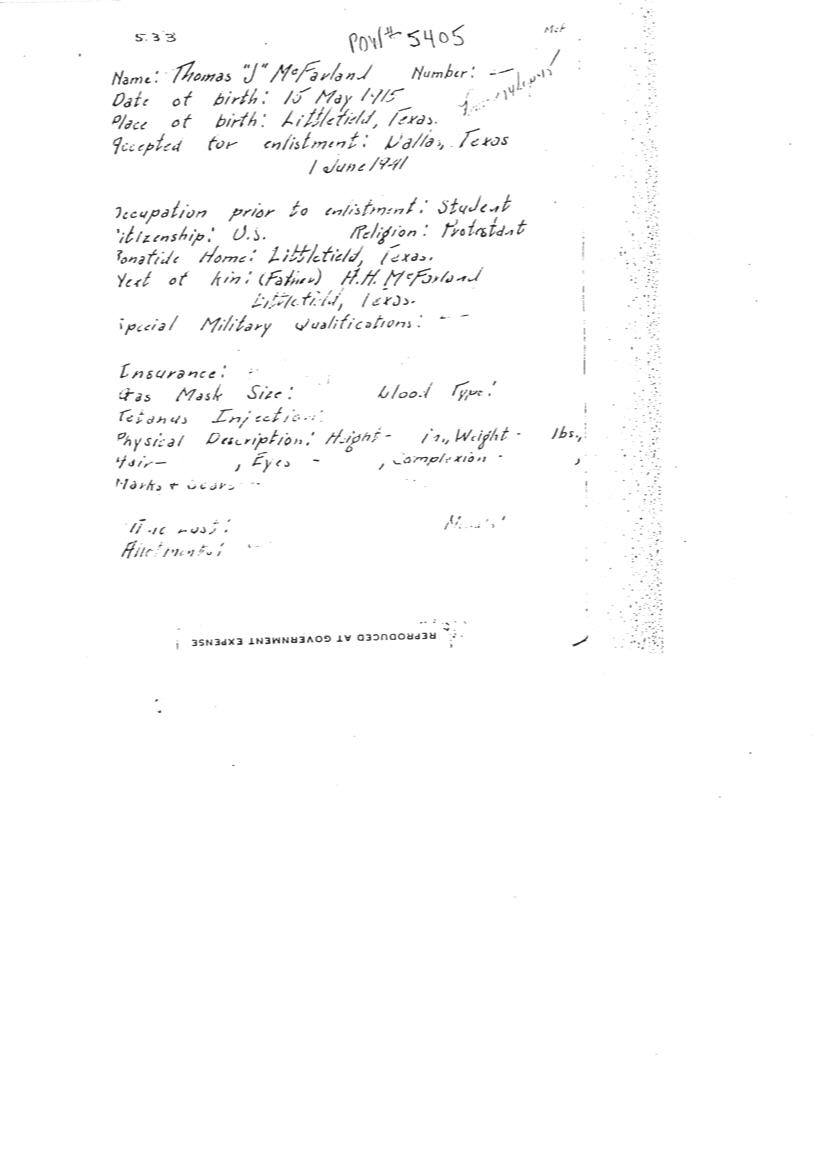 5.33
POW# 5405
McF
Name: Thomas "J" McFarland Number: --
Date of birth: 15 May 1915
Place of birth: Littlefield, Texas.
Accepted for enlistment: Dallas, Texas
1 June 1941
Occupation prior to enlistment: Student
Citizenship: U.S. Religion: Protestant
Bonafide Home: Littlefield, Texas.
Next of kin: (Father) H.H. McFarland
Littlefield, Texas.
Special Military Qualifications: --
Insurance:
Gas Mask Size: blood Type:
Tetanus Injection:
Physical Description: Height- in., Weight- lbs.,
Hair- , Eyes - , Complexion - ,
Marks + Scars -
Time Lost:
Allotments:
REPRODUCED AT GOVERNMENT EXPENSE